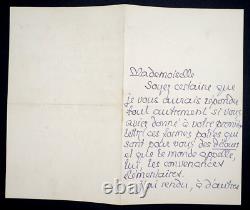 Mademoiselle
Soyez certaine que
je vous aurais répondu
tout autrement si vous
aviez donné à votre première
lettre ces formes polies qui
sont pour vous des détours
et que le monde appelle,
lui, les convenances
élémentaires.
J'ai rendu, à d'autres